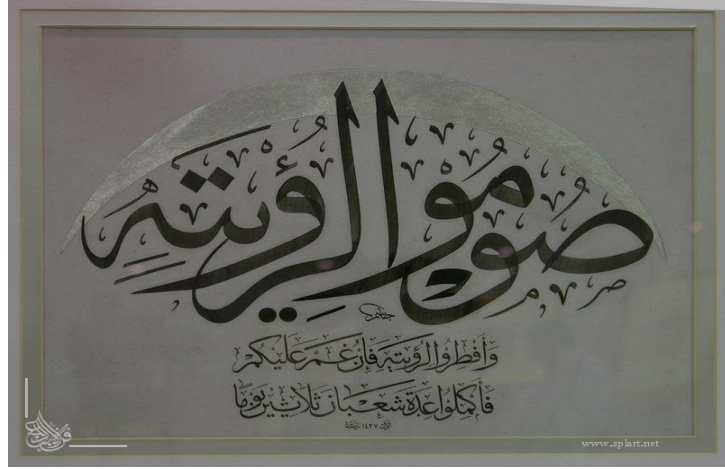 صُومُوا لِرُؤْيَتِهِ
وَأَفْطِرُوا لِرُؤْيَتِهِ فَإِنْ غُمَّ عَلَيْكُمْ
فَأَكْمِلُوا عِدَّةَ شَعْبَانَ ثَلَاثِينَ يَوْمًا
١٤٢٧
www.splart.net